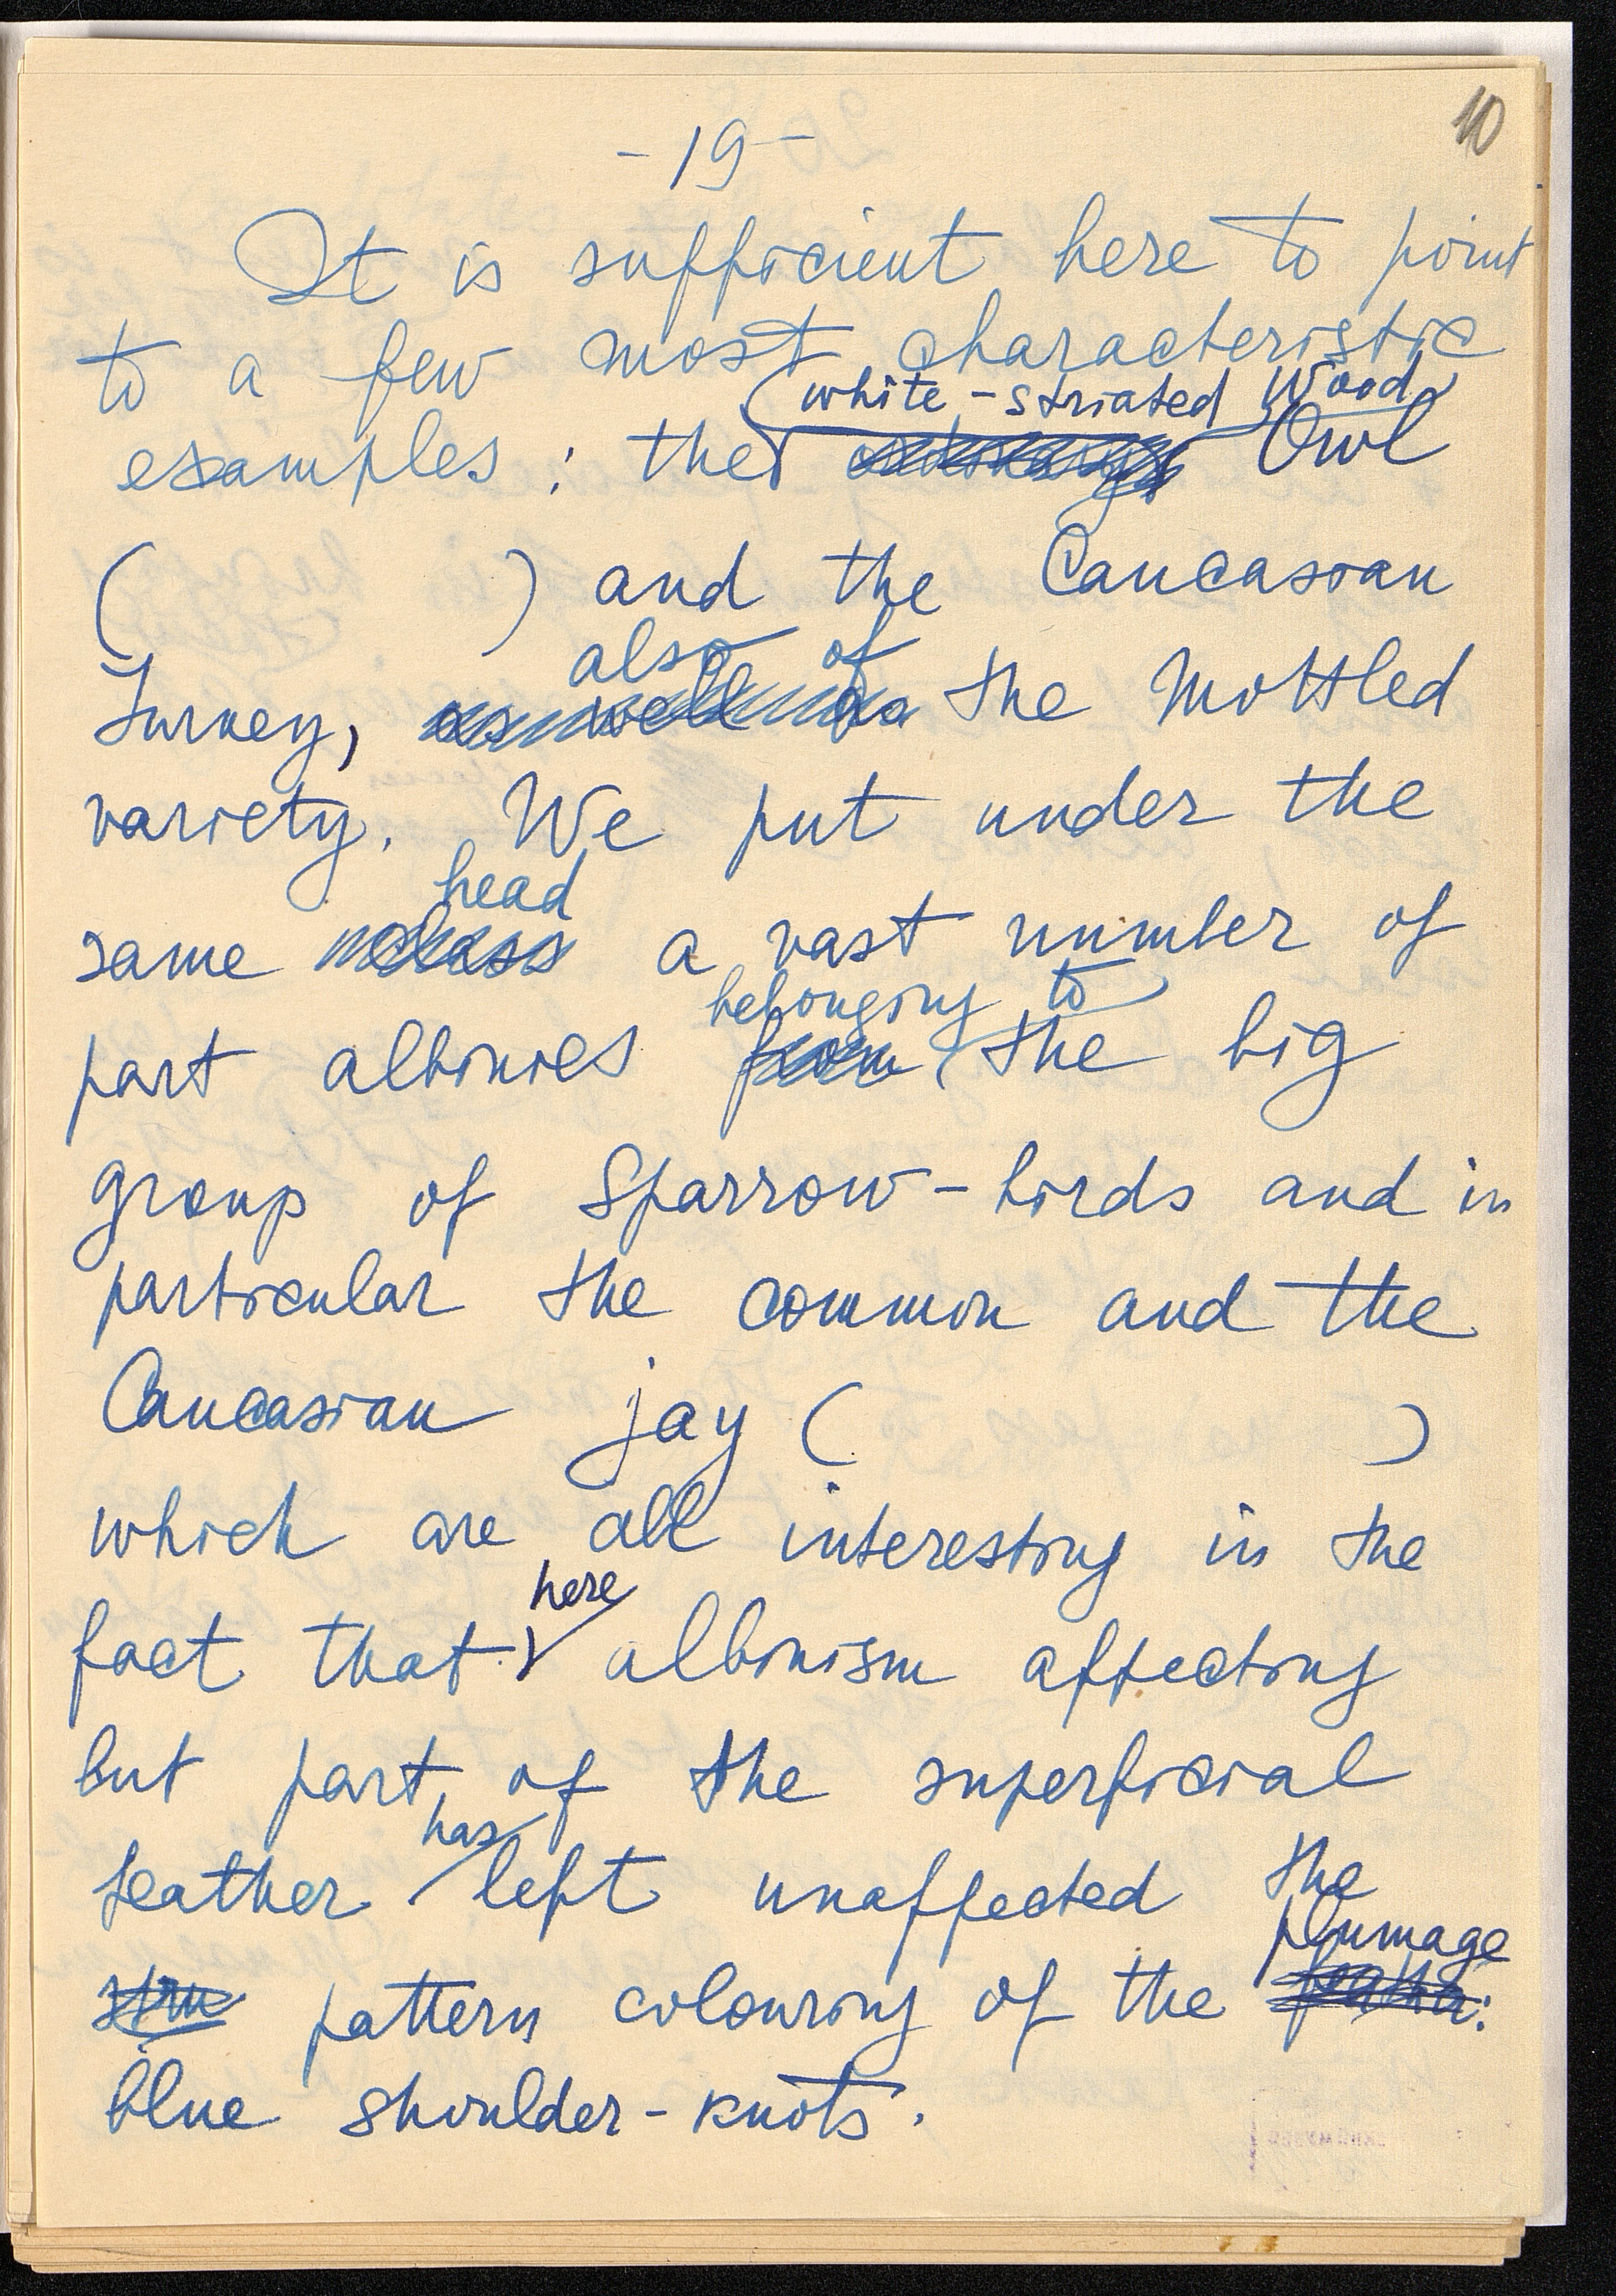 10
- 19 -
It is sufficient here to point
to a few most characteristic
white-striated Wood
examples : the Owl
( ) and the Caucasian
also of
Turkey, as well as the Mottled
variety. We put under the
head
same class a vast number of
belonging to
part albinies from the big
group of Sparrow-birds and in
particular the common and the
Caucasian jay ( )
which are all interesting in the
here
fact that albinism affecting
but part of the superficial
has
feather left unaffected the
plumage
stru pattern colouring of the feather:
blue shoulder-knots.